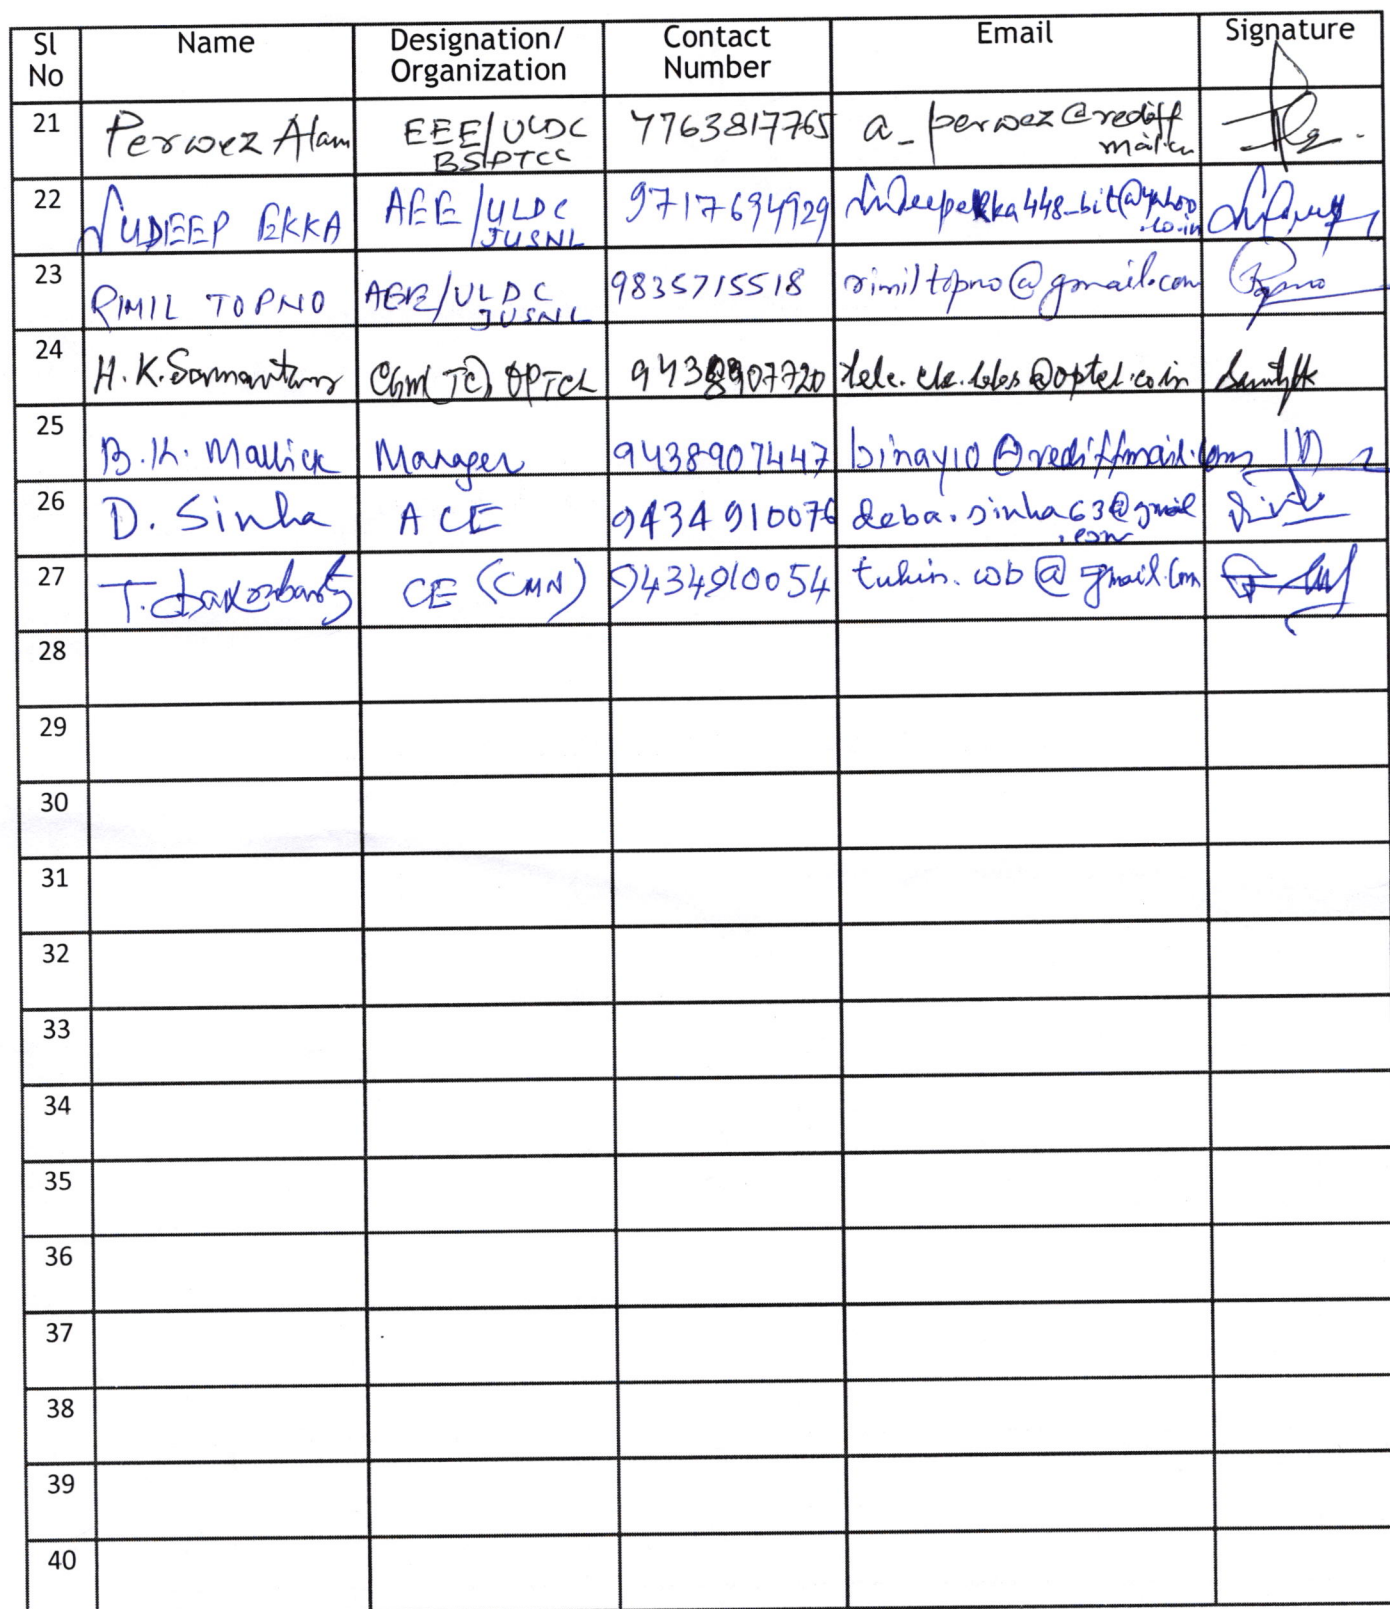 Sl No Name Designation/ Organization Contact Number Email Signature
21 Perwez Alam EEE/ULDC BSPTCL 7763817765 a_perwez@rediff
22 SUDEEP EKKA AEE/ULDC JUSNL 9717694929 sudeepekka448_bit@yahoo.co.in
23 RIMIL TOPNO AEE/ULDC JUSNL 9835715518 rimiltopno@gmail.com
24 H.K. OPTCL
25 B.K. Mallick Manager 9438907447 binay10@rediffmail.com
26 D. Sinha ACE 9434910076 deba.sinha63@gmail.com
27 CE (CMN) 9434910054 tuhin.wb@gmail.com
28
29
30
31
32
33
34
35
36
37
38
39
40